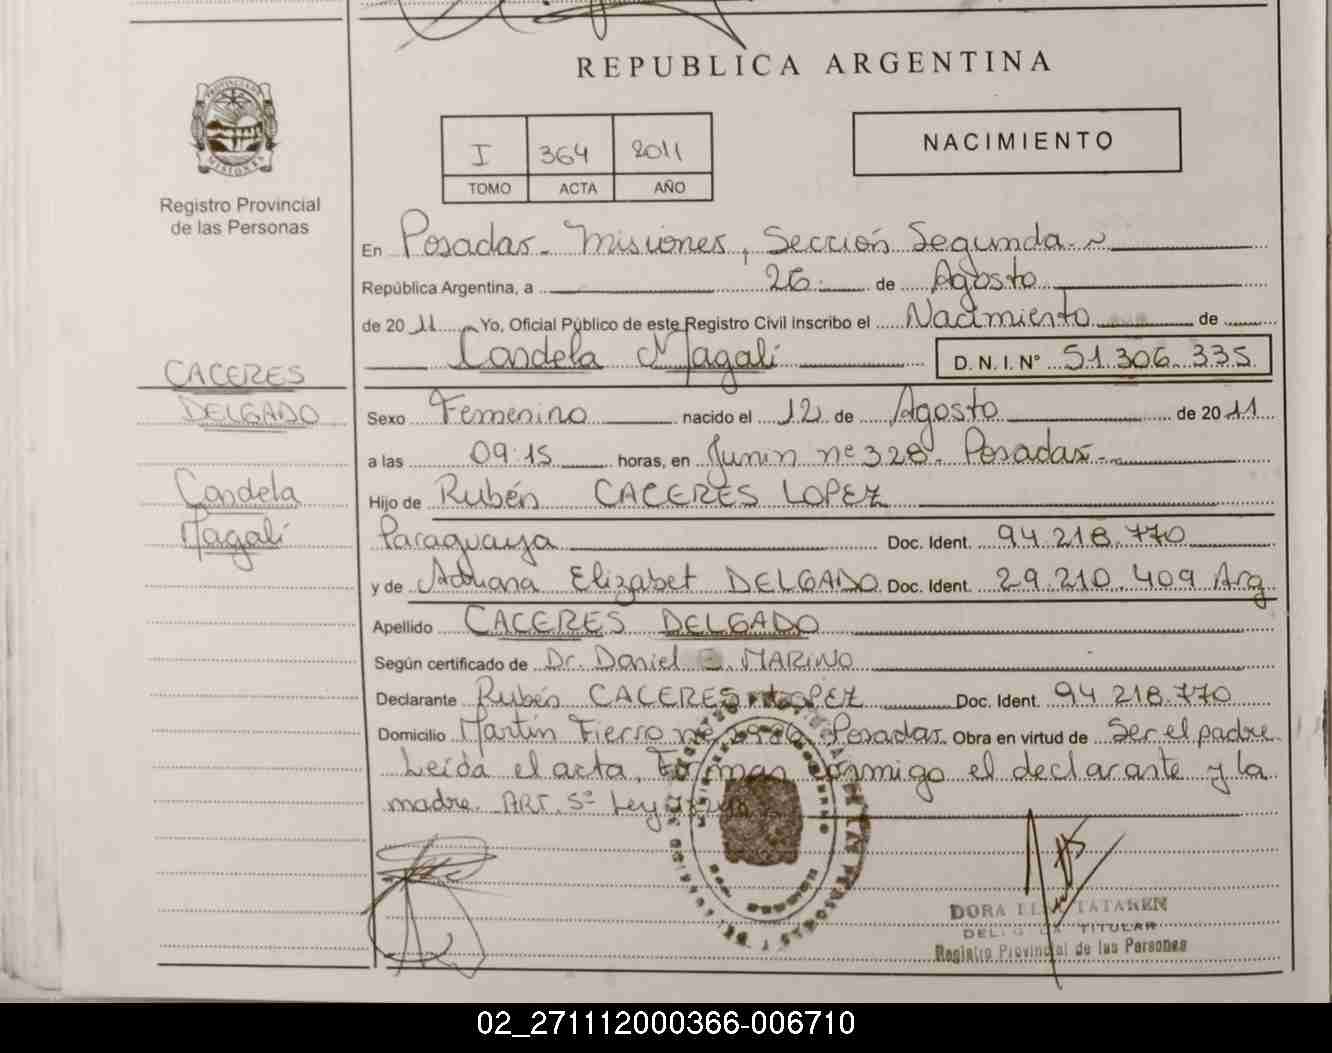 REPUBLICA ARGENTINA
PROVINCIA DE
MISIONES
Registro Provincial
de las Personas
I 364 2011
TOMO ACTA AÑO
NACIMIENTO
En Posadas - Misiones, Sección Segunda
República Argentina, a 26 de Agosto
de 2011 Yo, Oficial Público de este Registro Civil Inscribo el Nacimiento de
Candela Magalí D. N. I. N° 51.306.335
CACERES
DELGADO
Candela
Magalí
Sexo Femenino nacido el 12 de Agosto de 2011
a las 09:15 horas, en Junin nº 328 - Posadas
Hijo de Rubén CACERES LOPEZ
Paraguaya Doc. Ident. 94.218.770
y de Adriana Elizabet DELGADO Doc. Ident. 29.210.409 Arg
Apellido CACERES DELGADO
Según certificado de Dr. Daniel E. MARINO
Declarante Rubén CACERES LOPEZ Doc. Ident. 94.218.770
Domicilio Martín Fierro nº Posadas Obra en virtud de Ser el padre
Leída el acta, Firman conmigo el declarante y la
madre. ART. 5º Ley
DORA TATAREN
TITULAR
Registro Provincial de las Personas
02_271112000366-006710